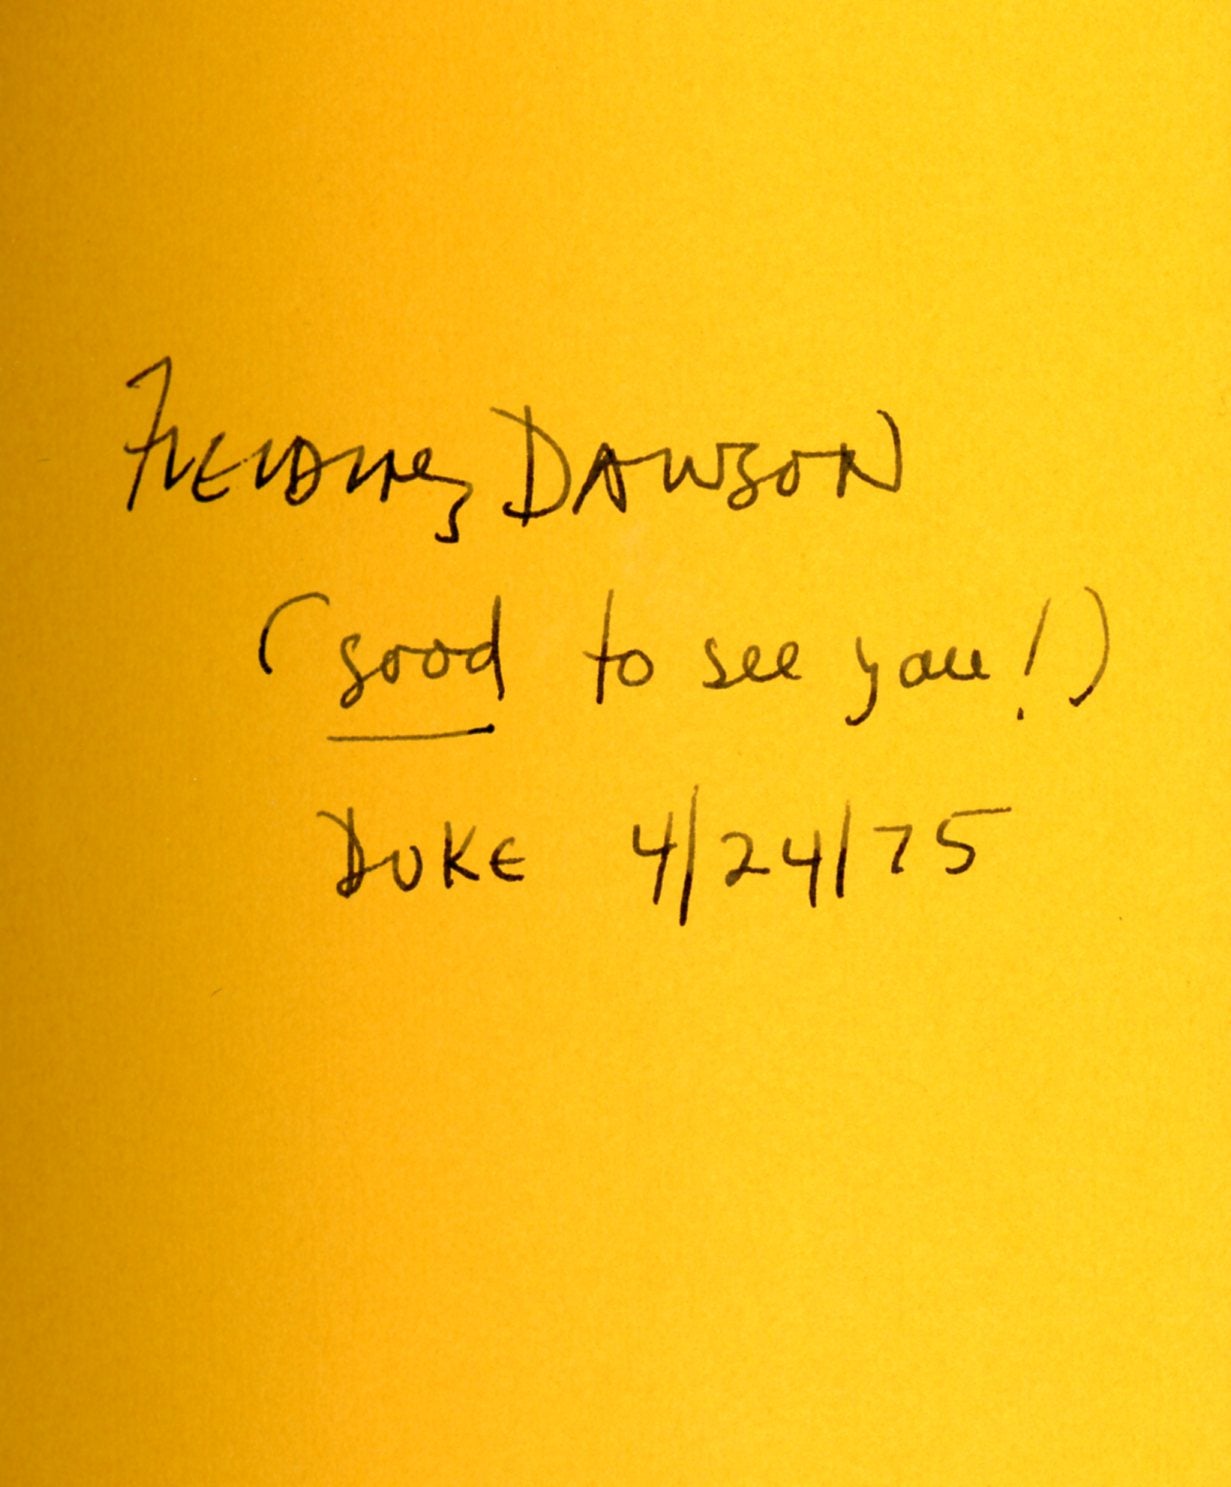 FIELDING DAWSON
(good to see you!)
DUKE 4/24/75